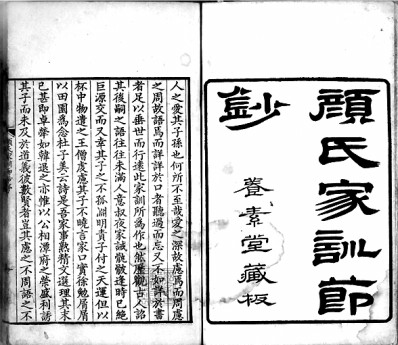 顏氏家訓節
鈔
養素堂藏板
人之愛其子孫也何所不至哉愛之深故慮焉而周慮
之周故語焉而詳詳於口者聽過而忘又不如詳於書
者足以垂世而行遠此家訓所為作也然歷觀古人詒
其後嗣之語往往未滿人意叔夜家誡骫骳逢時已絕
巨源交而又幸其子之不孤淵明責子付之天運但以
杯中物遣之王僧虔慮其子不曉言家口實徐勉屑屑
以田園為念杜子美云詩是吾家事熟精文選理其末
已甚即卓犖如韓退之亦惟以公相潭府之榮盛利誘
其子而未及於道義彼數賢者豈其慮之不周語之不